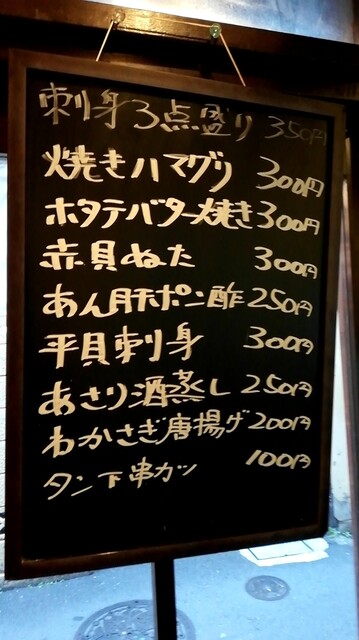 刺身3点盛り 350円
焼きハマグリ 300円
ホタテバター焼き 300円
赤貝ぬた 300円
あん肝ポン酢 250円
平貝刺身 300円
あさり酒蒸し 250円
わかさぎ唐揚げ 200円
タン下串カツ 100円